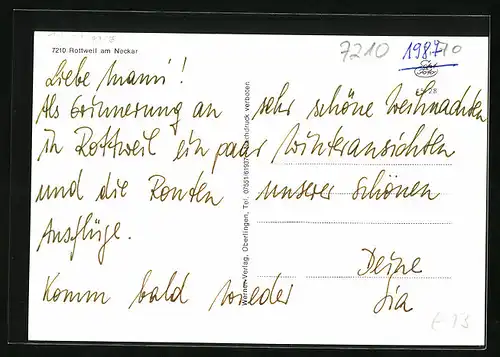 7210 Rottweil am Neckar
7210
1987
Liebe Mami!
Als Erinnerung an sehr schöne Weihnachten
in Rottweil ein paar Winteransichten
und die Routen unserer schönen
Ausflüge.
Deine
Komm bald wieder
Sia
Werner-Verlag, Überlingen, Tel. 07551/61937 Nachdruck verboten
E 13